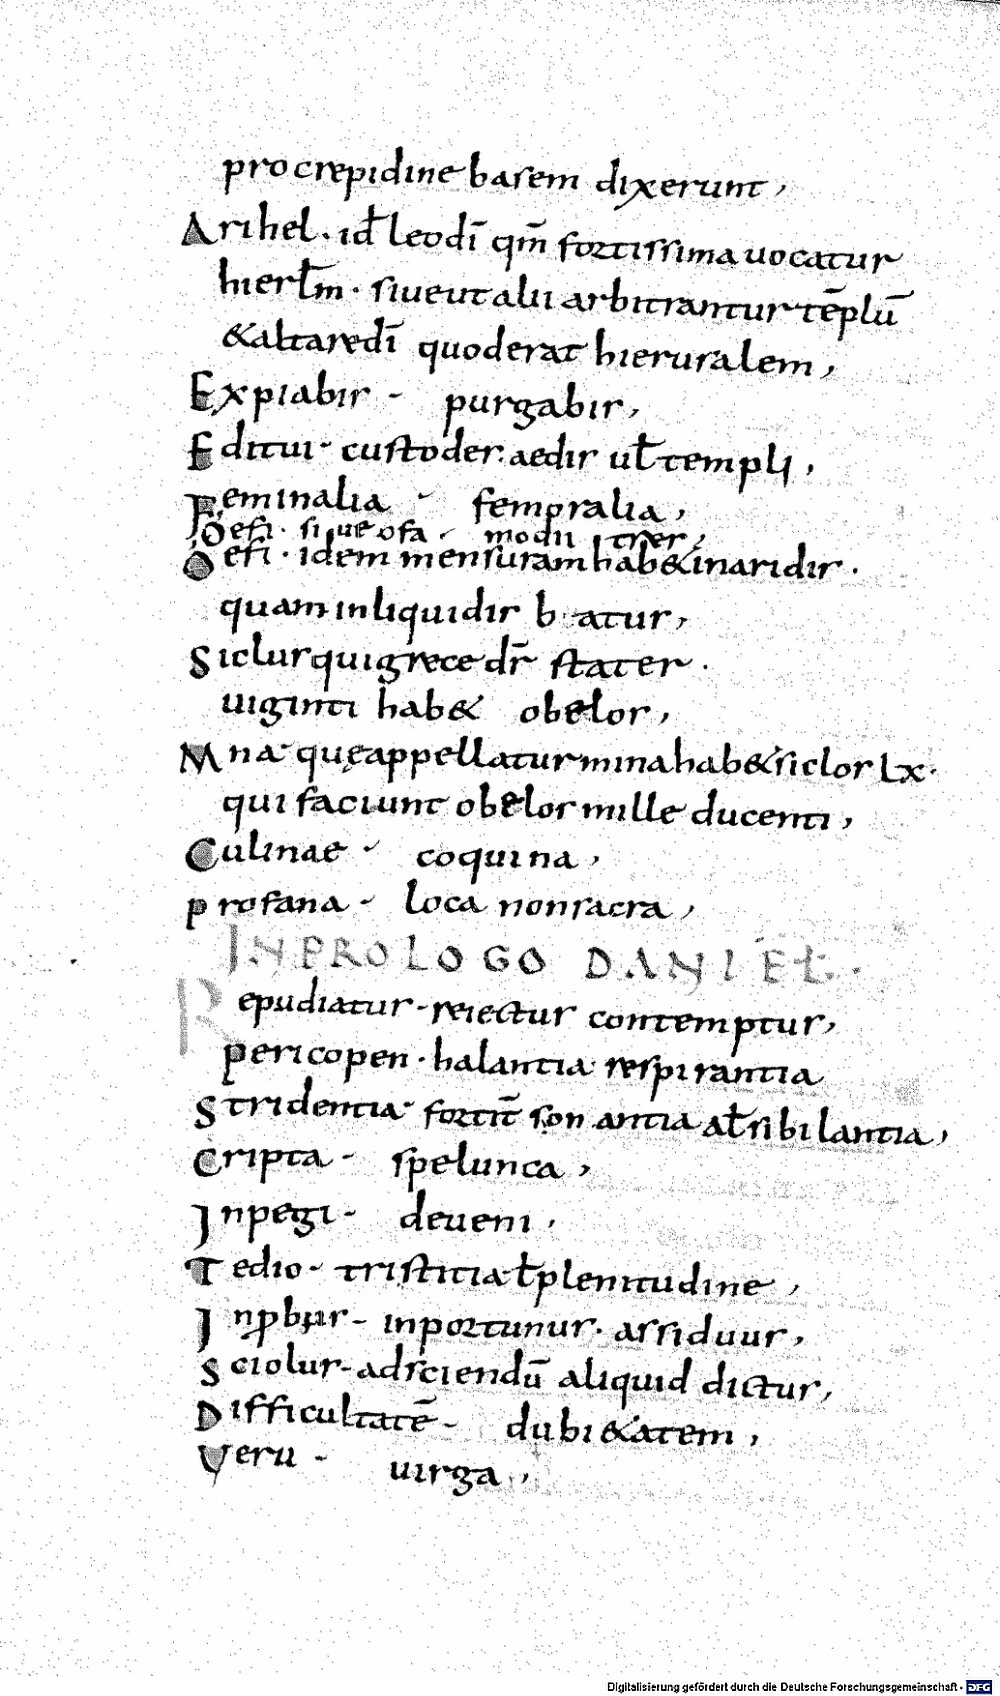 pro crepidine basem dixerunt,
Arihel. id ł leo dī qm̄ fortissima uocatur
hierłm. siue ut alii arbitrantur tēplū
& altare dī quod erat hierusalem,
Expiabis - purgabis,
Editui - custodes aedis uł templi,
Feminalia - femoralia,
Oefi. siue ofa - modii tres,
Oefi. idem mensuram hab& in aridis.
quam in liquidis b atus,
Siclus qui grece dr̄ stater.
uiginti hab& obelos,
Mna quę appellatur mina hab& siclos Lx.
qui faciunt obelos mille ducenti,
Culinae - coquina,
profana - loca non sacra,
IN PROLOGO DANIEL.
Repudiatus - reiectus contemptus,
pericopen. halantia respirantia
Stridentia fortit̄ sonantia ał sibilantia,
Cripta - spelunca,
Inpegi - deueni,
Tedio - tristitia ł plenitudine,
Inꝓbus - inportunus. assiduus,
Sciolus - ad sciendū aliquid dictus,
Difficultatē - dubi&atem,
Veru - uirga,
Digitalisierung gefördert durch die Deutsche Forschungsgemeinschaft - DFG